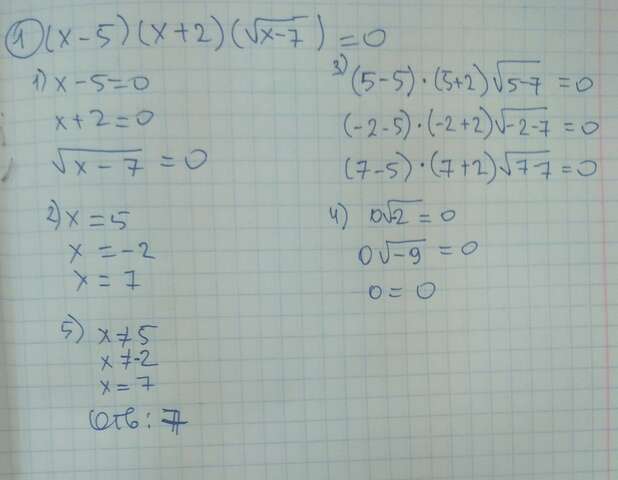 1 (x-5)(x+2)(√x-7) = 0
1) x-5=0
x+2=0
√x-7 = 0
2) x = 5
x = -2
x = 7
3) (5-5)·(5+2)√5-7 = 0
(-2-5)·(-2+2)√-2-7 = 0
(7-5)·(7+2)√7-7 = 0
4) 0√-2 = 0
0√-9 = 0
0 = 0
5) x ≠ 5
x ≠ -2
x = 7
Отв: 7